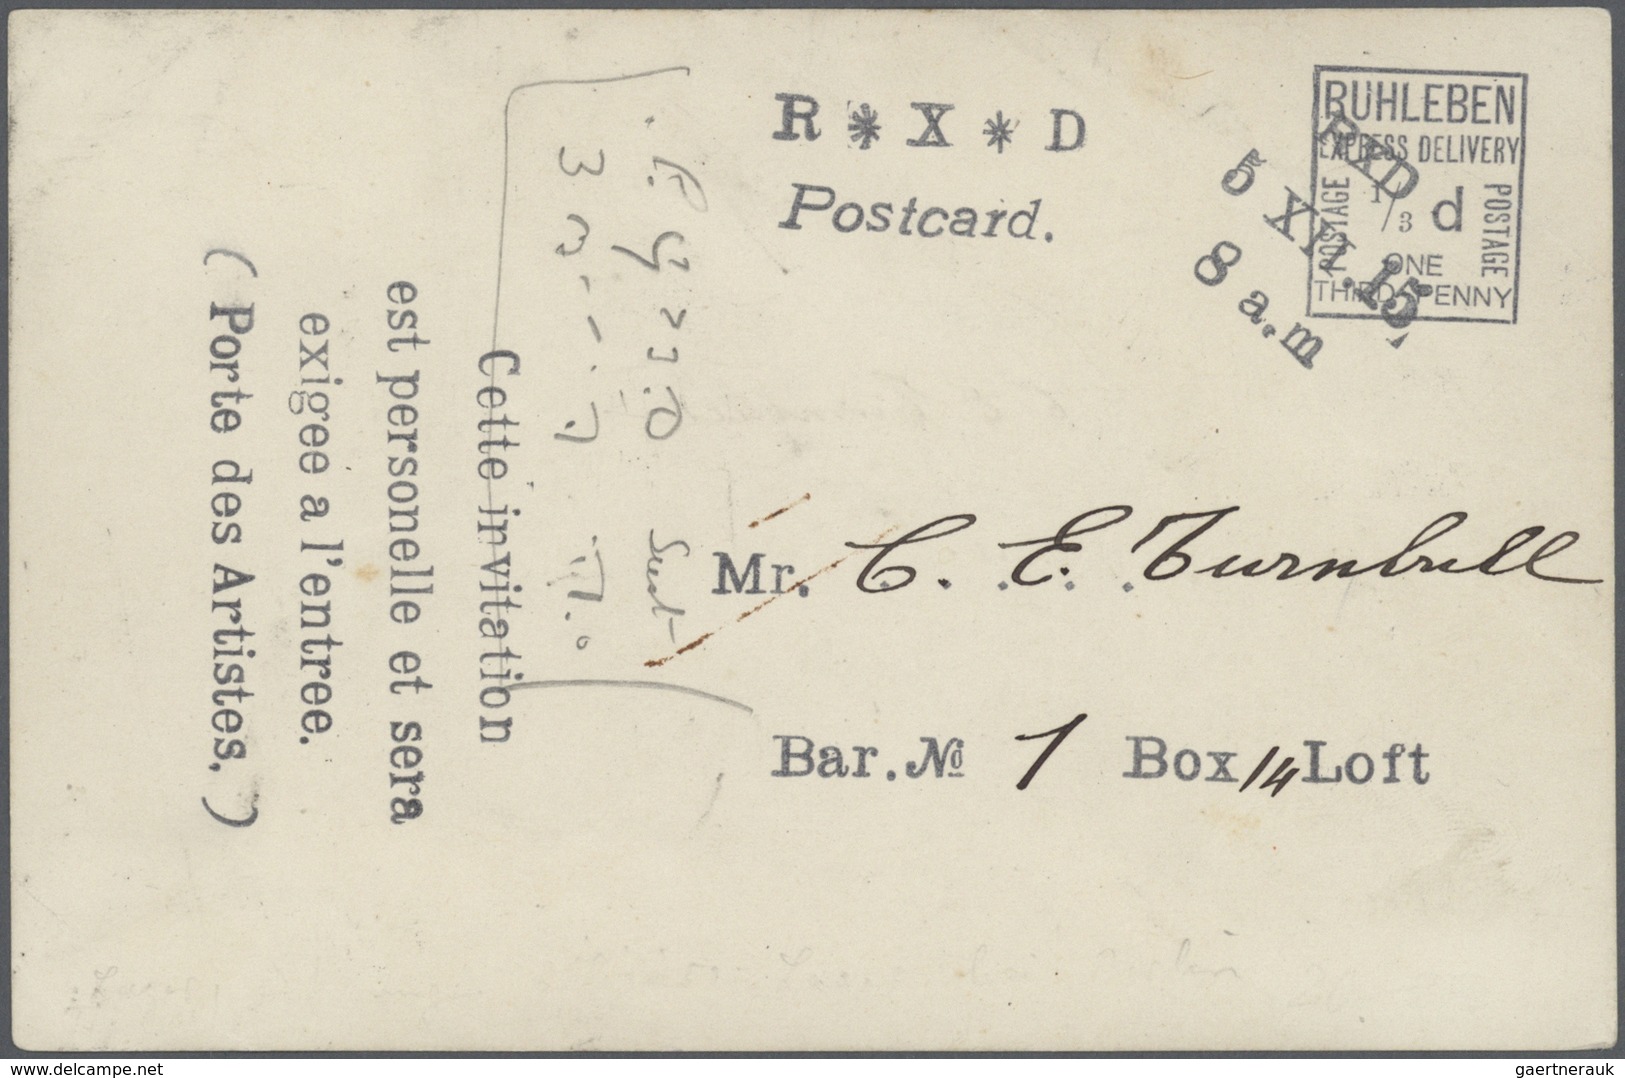 R * X * D
Postcard.
RUHLEBEN
EXPRESS DELIVERY
POSTAGE
1/3 d
POSTAGE
ONE
THIRD PENNY
RXD
5 XII.15,
8 a.m
Mr. C. E. Turnbull
Bar. № 1 Box 14 Loft
Cette invitation
est personelle et sera
exigee a l'entree.
(Porte des Artistes.)
www.delcampe.net
gaertnerauk